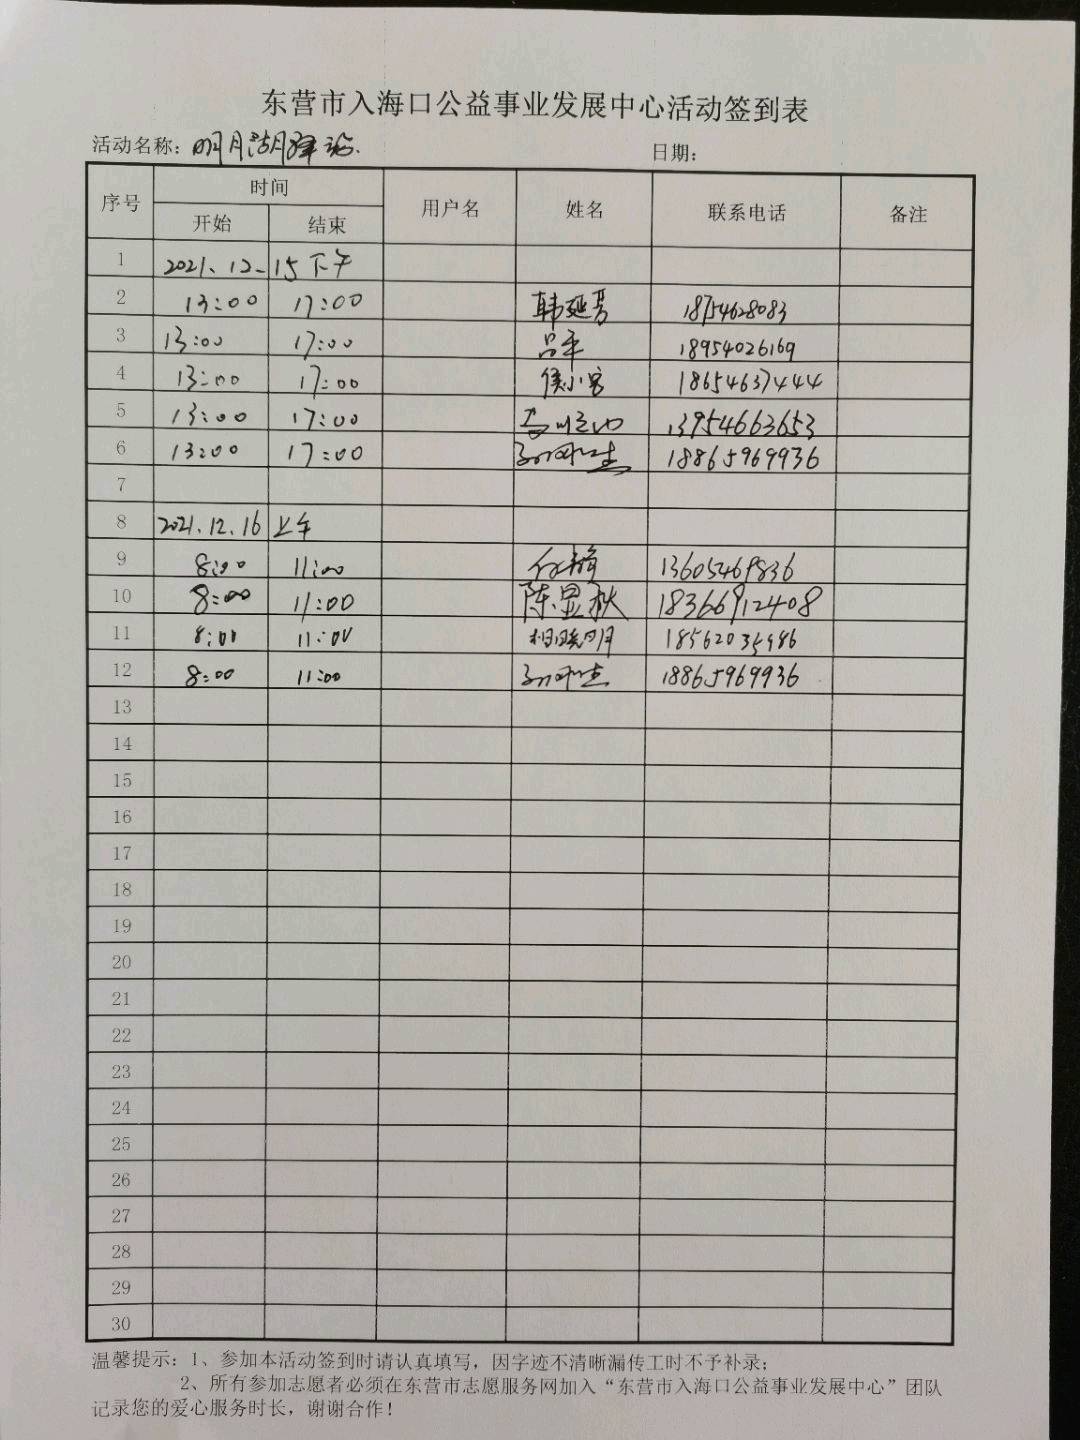 东营市入海口公益事业发展中心活动签到表
活动名称：明月湖驿站. 日期：
序号 时间 用户名 姓名 联系电话 备注
开始 结束
1 2021.12-15下午
2 13:00 17:00 韩延芳 18754628083
3 13:00 17:00 吕平 18954026169
4 13:00 17:00 侯小容 18654637444
5 13:00 17:00 13954663653
6 13:00 17:00 18865969936
7
8 2021.12.16 上午
9 8:00 11:00 任静 13605469836
10 8:00 11:00 陈显秋 18366912408
11 8:00 11:00 相晓明 18562035986
12 8:00 11:00 18865969936
13
14
15
16
17
18
19
20
21
22
23
24
25
26
27
28
29
30
温馨提示：1、参加本活动签到时请认真填写，因字迹不清晰漏传工时不予补录；
2、所有参加志愿者必须在东营市志愿服务网加入“东营市入海口公益事业发展中心”团队
记录您的爱心服务时长，谢谢合作！